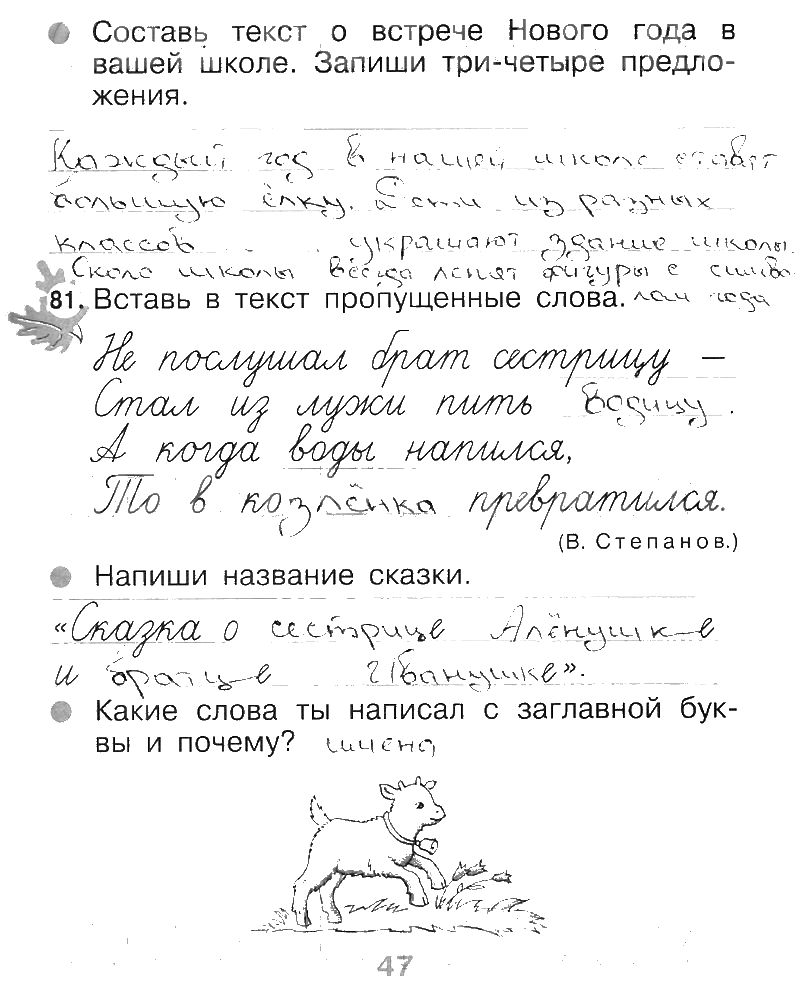 Составь текст о встрече Нового года в
вашей школе. Запиши три-четыре предло-
жения.
Каждый год в нашей школе ставят
большую ёлку. Дети из разных
классов украшают здание школы.
Около школы всегда лепят фигуры с симво-
81. Вставь в текст пропущенные слова. лом года
Не послушал брат сестрицу –
Стал из лужи пить водицу.
А когда воды напился,
То в козлёнка превратился.
(В. Степанов.)
Напиши название сказки.
«Сказка о сестрице Алёнушке
и братце Иванушке».
Какие слова ты написал с заглавной бук-
вы и почему? имена
47